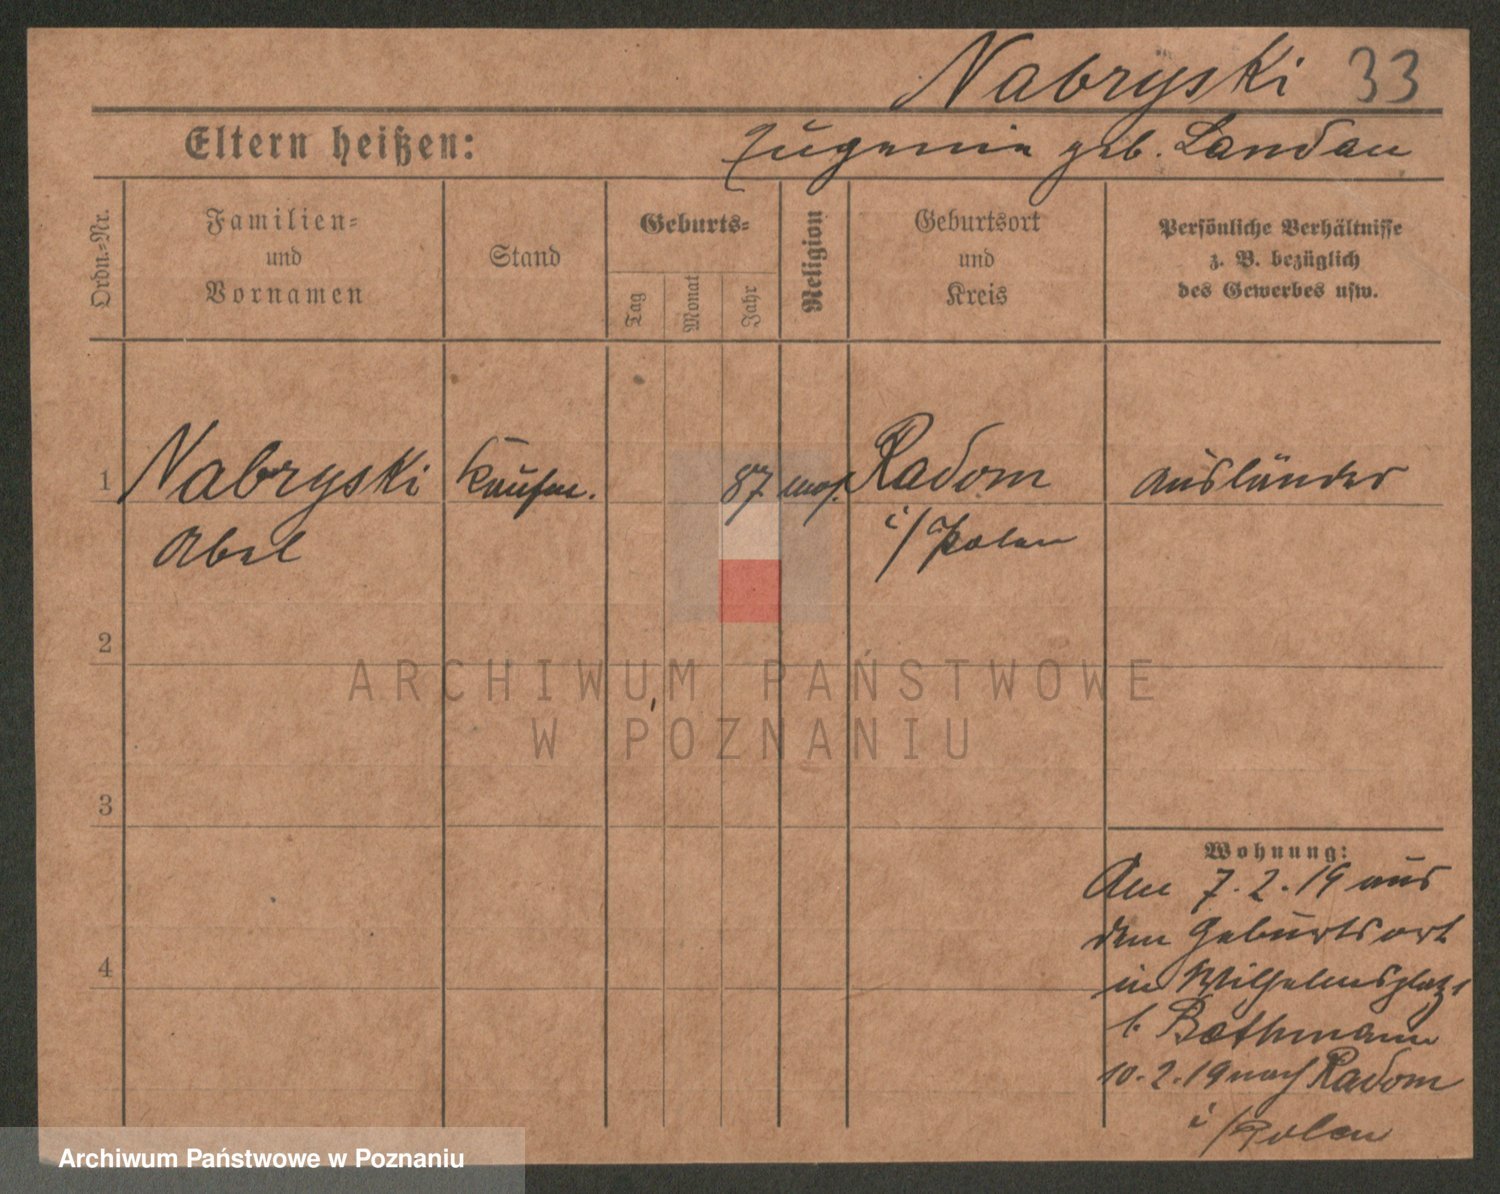 Nabryski 33
Eltern heißen: Eugenie geb. Landau
Ordn.-Nr.
Familien-
und
Vornamen
Stand
Geburts-
Tag
Monat
Jahr
Religion
Geburtsort
und
Kreis
Persönliche Verhältnisse
z. B. bezüglich
des Gewerbes usw.
1 Nabryski Kaufm. 87 mos. Radom Ausländer
Abel i/Polen
2
ARCHIWUM PAŃSTWOWE
W POZNANIU
3
Wohnung:
Am 7.2.19 aus
dem Geburtsort
in Wilhelmsplatz 1
b. Bothmann
4
10.2.19 nach Radom
i/Polen
Archiwum Państwowe w Poznaniu